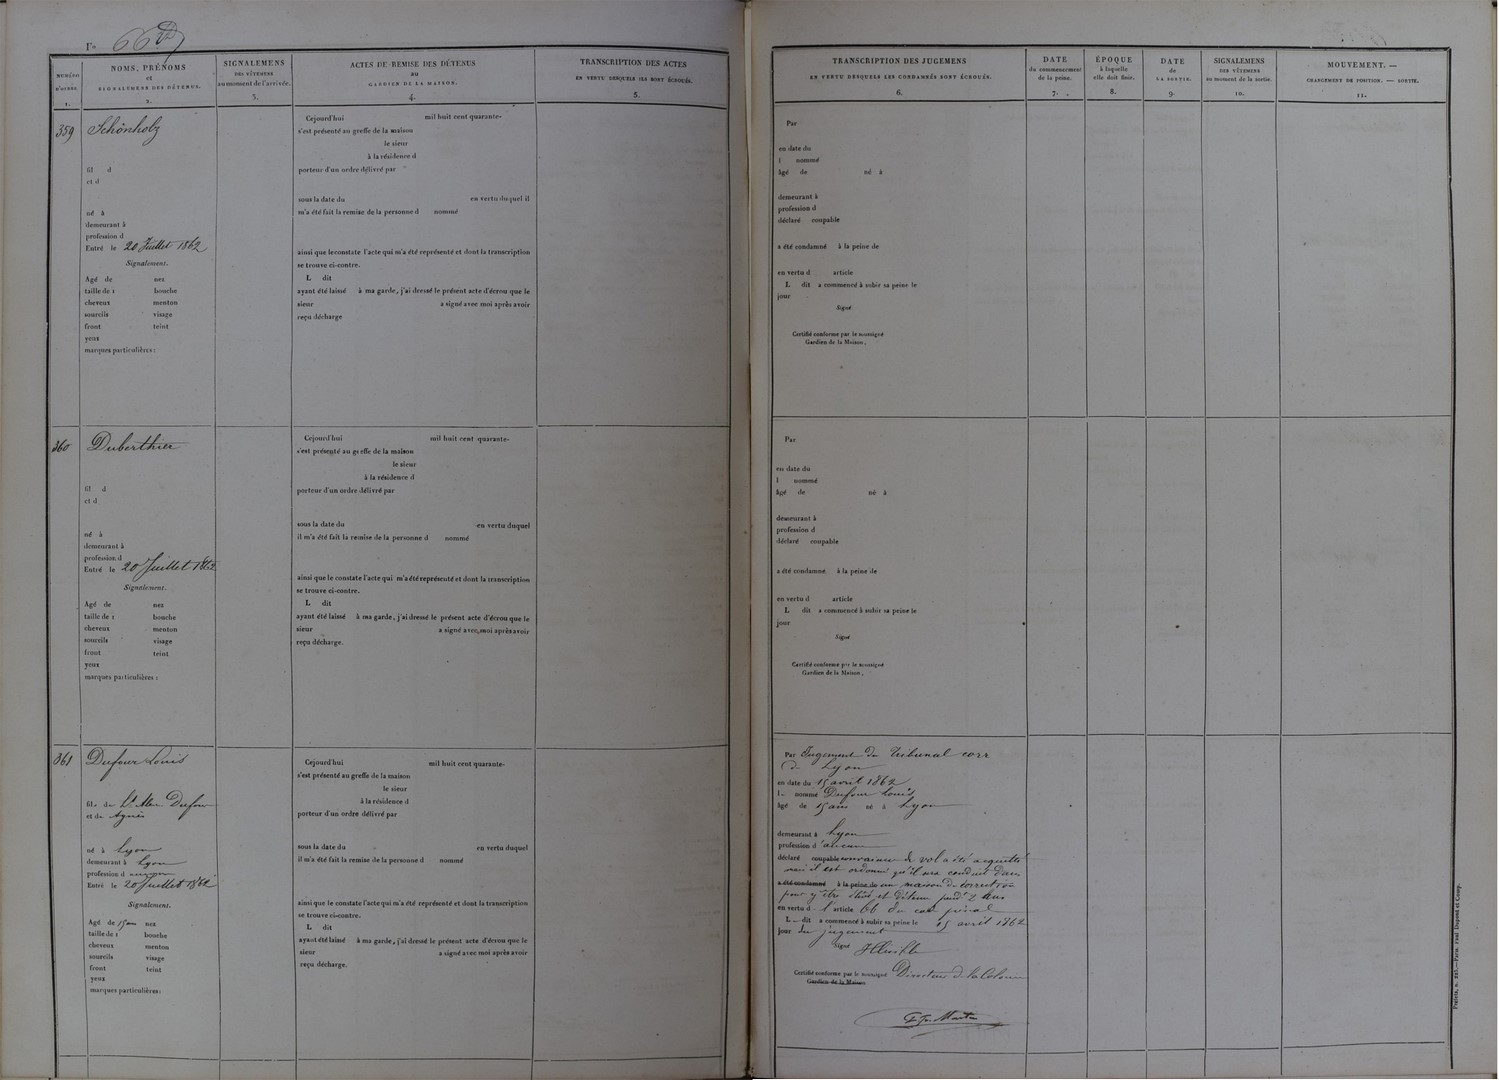 Fo 66
NUMÉRO
D'ORDRE
1.
NOMS, PRÉNOMS
et
SIGNALEMENS DES DÉTENUS.
2.
SIGNALEMENS
DES VÊTEMENS
au moment de l'arrivée.
3.
ACTES DE REMISE DES DÉTENUS
au
GARDIEN DE LA MAISON.
4.
TRANSCRIPTION DES ACTES
EN VERTU DESQUELS ILS SONT ÉCROUÉS.
5.
TRANSCRIPTION DES JUGEMENS
EN VERTU DESQUELS LES CONDAMNÉS SONT ÉCROUÉS.
6.
DATE
du commencement
de la peine.
7.
ÉPOQUE
à laquelle
elle doit finir.
8.
DATE
de
LA SORTIE.
9.
SIGNALEMENS
DES VÊTEMENS
au moment de la sortie.
10.
MOUVEMENT. —
CHANGEMENT DE POSITION. — SORTIE.
11.
359
Schönholz
fil d
et d
né à
demeurant à
profession d
Entré le 20 Juillet 1862
Signalement.
Agé de nez
taille de 1 bouche
cheveux menton
sourcils visage
front teint
yeux
marques particulières :
Cejourd'hui mil huit cent quarante-
s'est présenté au greffe de la maison
le sieur
à la résidence d
porteur d'un ordre délivré par
sous la date du en vertu duquel il
m'a été fait la remise de la personne d nommé
ainsi que le constate l'acte qui m'a été représenté et dont la transcription
se trouve ci-contre.
L dit
ayant été laissé à ma garde, j'ai dressé le présent acte d'écrou que le
sieur a signé avec moi après avoir
reçu décharge
Par
en date du
l nommé
âgé de né à
demeurant à
profession d
déclaré coupable
a été condamné à la peine de
en vertu d article
L dit a commencé à subir sa peine le
jour
Signé
Certifié conforme par le soussigné
Gardien de la Maison.
360
Duberthier
fil d
et d
né à
demeurant à
profession d
Entré le 20 Juillet 1862
Signalement.
Agé de nez
taille de 1 bouche
cheveux menton
sourcils visage
front teint
yeux
marques particulières :
Cejourd'hui mil huit cent quarante-
s'est présenté au greffe de la maison
le sieur
à la résidence d
porteur d'un ordre délivré par
sous la date du en vertu duquel
il m'a été fait la remise de la personne d nommé
ainsi que le constate l'acte qui m'a été représenté et dont la transcription
se trouve ci-contre.
L dit
ayant été laissé à ma garde, j'ai dressé le présent acte d'écrou que le
sieur a signé avec moi après avoir
reçu décharge.
Par
en date du
l nommé
âgé de né à
demeurant à
profession d
déclaré coupable
a été condamné à la peine de
en vertu d article
L dit a commencé à subir sa peine le
jour
Signé
Certifié conforme par le soussigné
Gardien de la Maison.
361
Dufour Louis
fils de Dufour
et de Agnès
né à Lyon
demeurant à Lyon
profession d aucun
Entré le 20 Juillet 1862
Signalement.
Agé de 15 ans nez
taille de 1 bouche
cheveux menton
sourcils visage
front teint
yeux
marques particulières:
Cejourd'hui mil huit cent quarante-
s'est présenté au greffe de la maison
le sieur
à la résidence d
porteur d'un ordre délivré par
sous la date du en vertu duquel
il m'a été fait la remise de la personne d nommé
ainsi que le constate l'acte qui m'a été représenté et dont la transcription
se trouve ci-contre.
L dit
ayant été laissé à ma garde, j'ai dressé le présent acte d'écrou que le
sieur a signé avec moi après avoir
reçu décharge.
Par Jugement du Tribunal corr
de Lyon
en date du 15 avril 1862
le nommé Dufour Louis
âgé de 15 ans né à Lyon
demeurant à Lyon
profession d'aucun
déclaré coupable convaincu de vol a été acquitté
mais il est ordonné qu'il sera conduit dans
a été condamné à la peine de une maison de correction
pour y être élevé et détenu pendt 2 ans
en vertu de l'article 66 du code pénal
Le dit a commencé à subir sa peine le 15 avril 1862
jour du jugement
Signé
Certifié conforme par le soussigné Directeur de la Colonie
Gardien de la Maison
Martin
Paris, Paul Dupont et Comp.